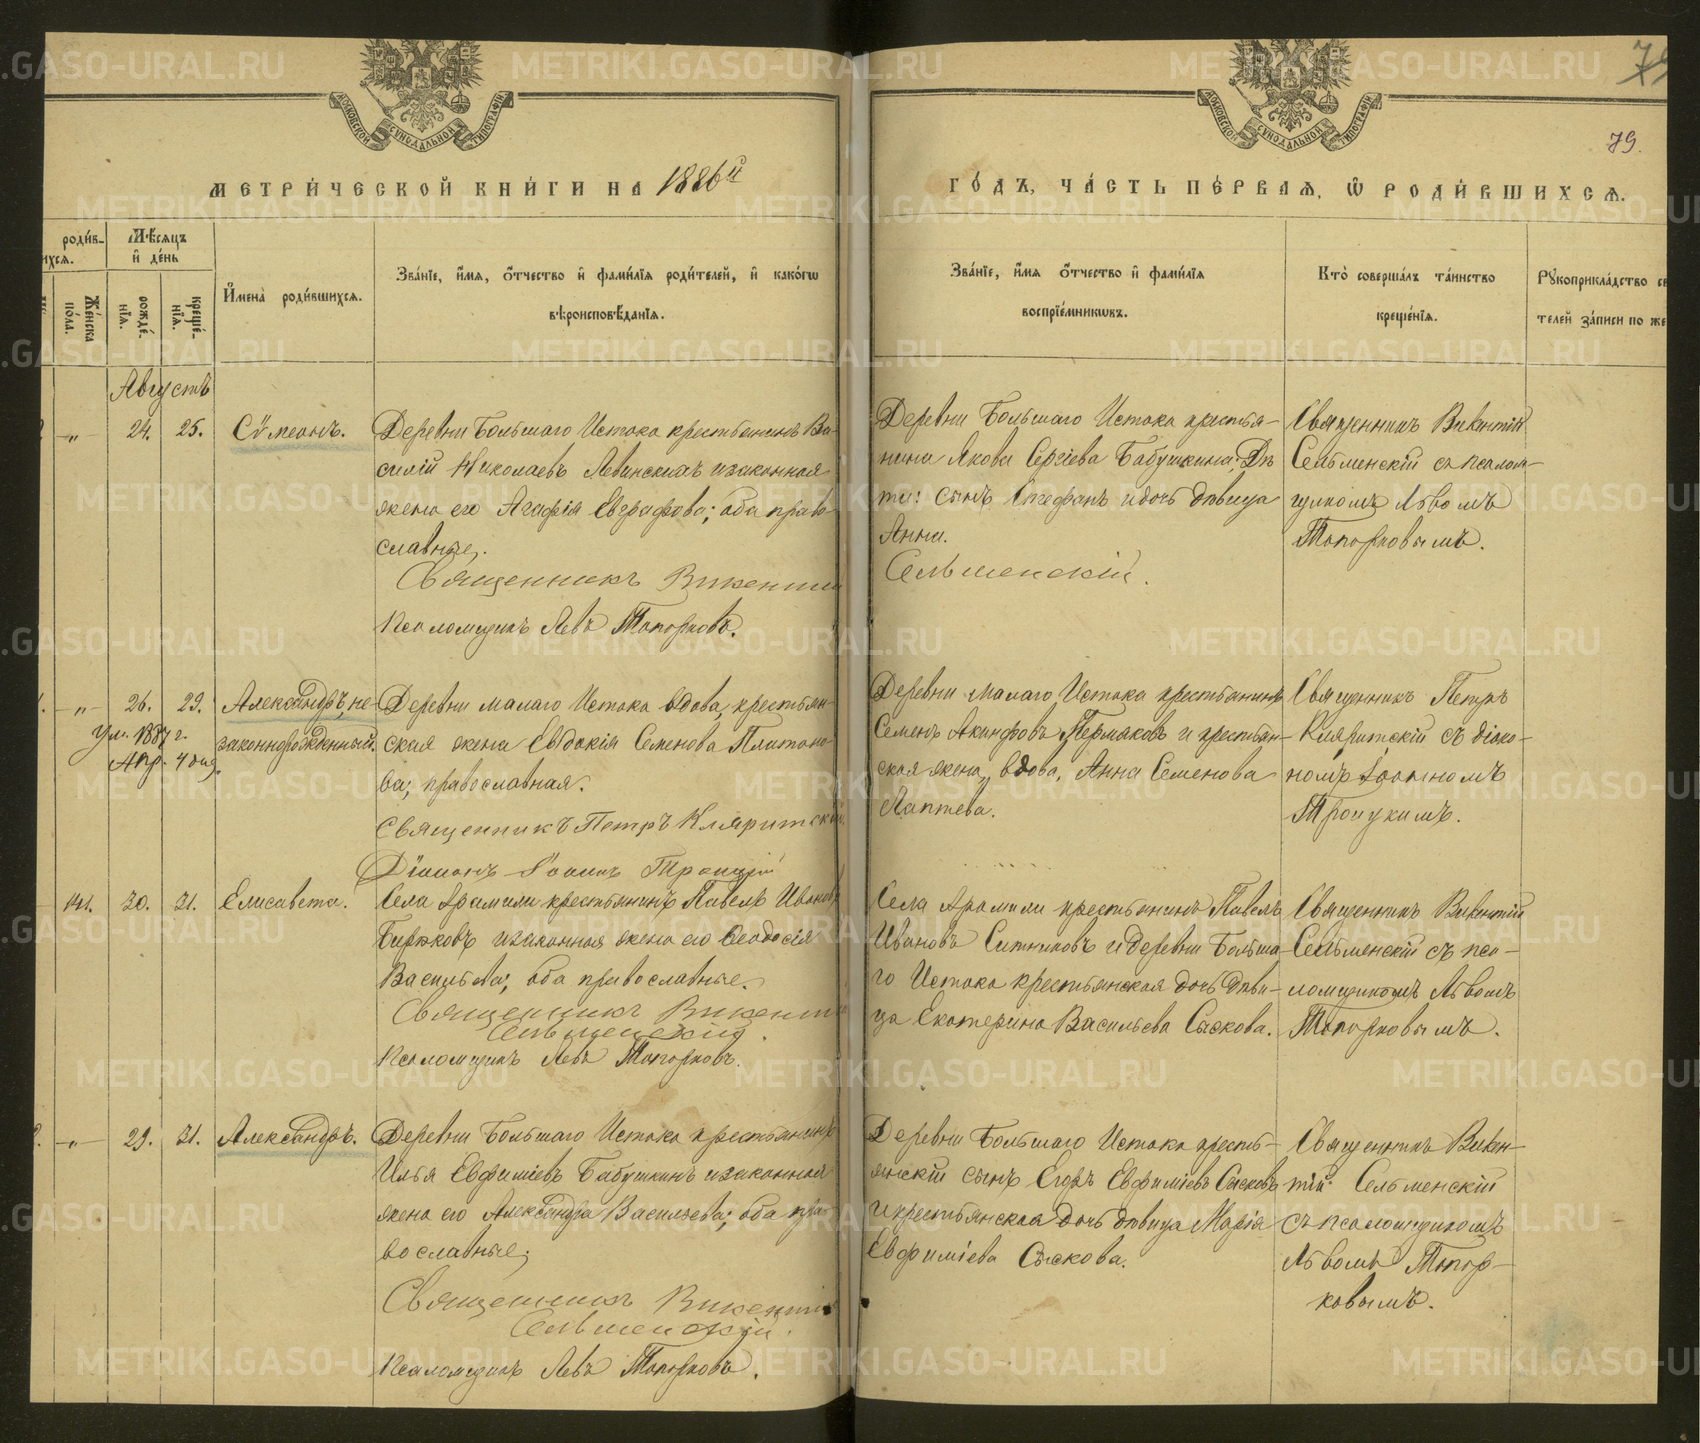 METRIKI.GASO-URAL.RU
МОСКОВСКОЙ СѴНОДАЛЬНОЙ ТИПОГРАФІИ
МОСКОВСКОЙ СѴНОДАЛЬНОЙ ТИПОГРАФІИ
79.
МЕТРИ́ЧЕСКОЙ КНИ́ГИ НА 1886й
ГО́ДЪ, ЧА́СТЬ ПЕ́РВАЯ, Ѡ РОДИ́ВШИХСЯ.
роди́в-
ихся.
Же́нска по́ла.
Мѣ́сяцъ и҆ де́нь
рожде́нїя.
креще́нїя.
И҆мена̀ роди́вшихся.
Зва́нїе, и҆́мя, ѻ҆́тчество и҆ фами́лїя роди́телей, и҆ како́гѡ
вѣроисповѣ́данїя.
Зва́нїе, и҆́мя ѻ҆́тчество и҆ фами́лїя
воспрїе́мникѡвъ.
Кто̀ соверша́лъ та́инство
креще́нїя.
Рꙋкоприкла́дство св
телей за́писи по же
Августъ
-„- 24. 25. Сѵмеонъ.
Деревни Большаго Истока крестьянинъ Ва-
силій Николаевъ Левинскихъ и законная
жена его Агафія Евграфова; оба право-
славные.
Священникъ Викентій
Сельменскій.
Псаломщикъ Левъ Топорковъ.
Деревни Большаго Истока крестья-
нина Якова Сергіева Бабушкина: Дѣ
ти: сынъ Стефанъ и дочь дѣвица
Анна.
Священникъ Викентій
Сельменскій съ псалом-
щикомъ Львомъ
Топорковымъ.
-„- 26. 29. Александръ, не-
законнорожденный.
Ум. 1887 г.
Апр. 4 дня.
Деревни Малаго Истока вдова, крестьян-
ская жена Евдокія Семенова Платоно-
ва; православная.
Священникъ Петръ Кляритскій
Діаконъ Іоаннъ Троицкій
Деревни Малаго Истока крестьянинъ
Семенъ Пермяковъ и крестьян-
ская жена, вдова, Анна Семенова
Лаптева.
Священникъ Петръ
Кляритскій съ діако-
номъ Іоанномъ
Троицкимъ.
141. 30. 31. Елисавета.
Села Арамили крестьянинъ Павелъ Ивановъ
Бирюковъ и законная жена его Ѳеодосія
Васильева; оба православные.
Священникъ Викентій
Сельменскій.
Псаломщикъ Левъ Топорковъ.
Села Арамили крестьянинъ Павелъ
Ивановъ Ситниковъ и деревни Больша-
го Истока крестьянская дочь дѣви-
ца Екатерина Васильева Сыскова.
Священникъ Викентій
Сельменскій съ пса-
ломщикомъ Львомъ
Топорковымъ.
-„- 29. 31. Александръ.
Деревни Большаго Истока крестьянинъ
Илья Евфиміевъ Бабушкинъ и законная
жена его Александра Васильева; оба пра-
вославные.
Священникъ Викентій
Сельменскій.
Псаломщикъ Левъ Топорковъ.
Деревни Большаго Истока кресть-
янскій сынъ Егоръ Евфиміевъ Сысковъ
и крестьянская дочь дѣвица Марія
Евфиміева Сыскова.
Священникъ Викен-
тій Сельменскій
съ псаломщикомъ
Львомъ Топор-
ковымъ.